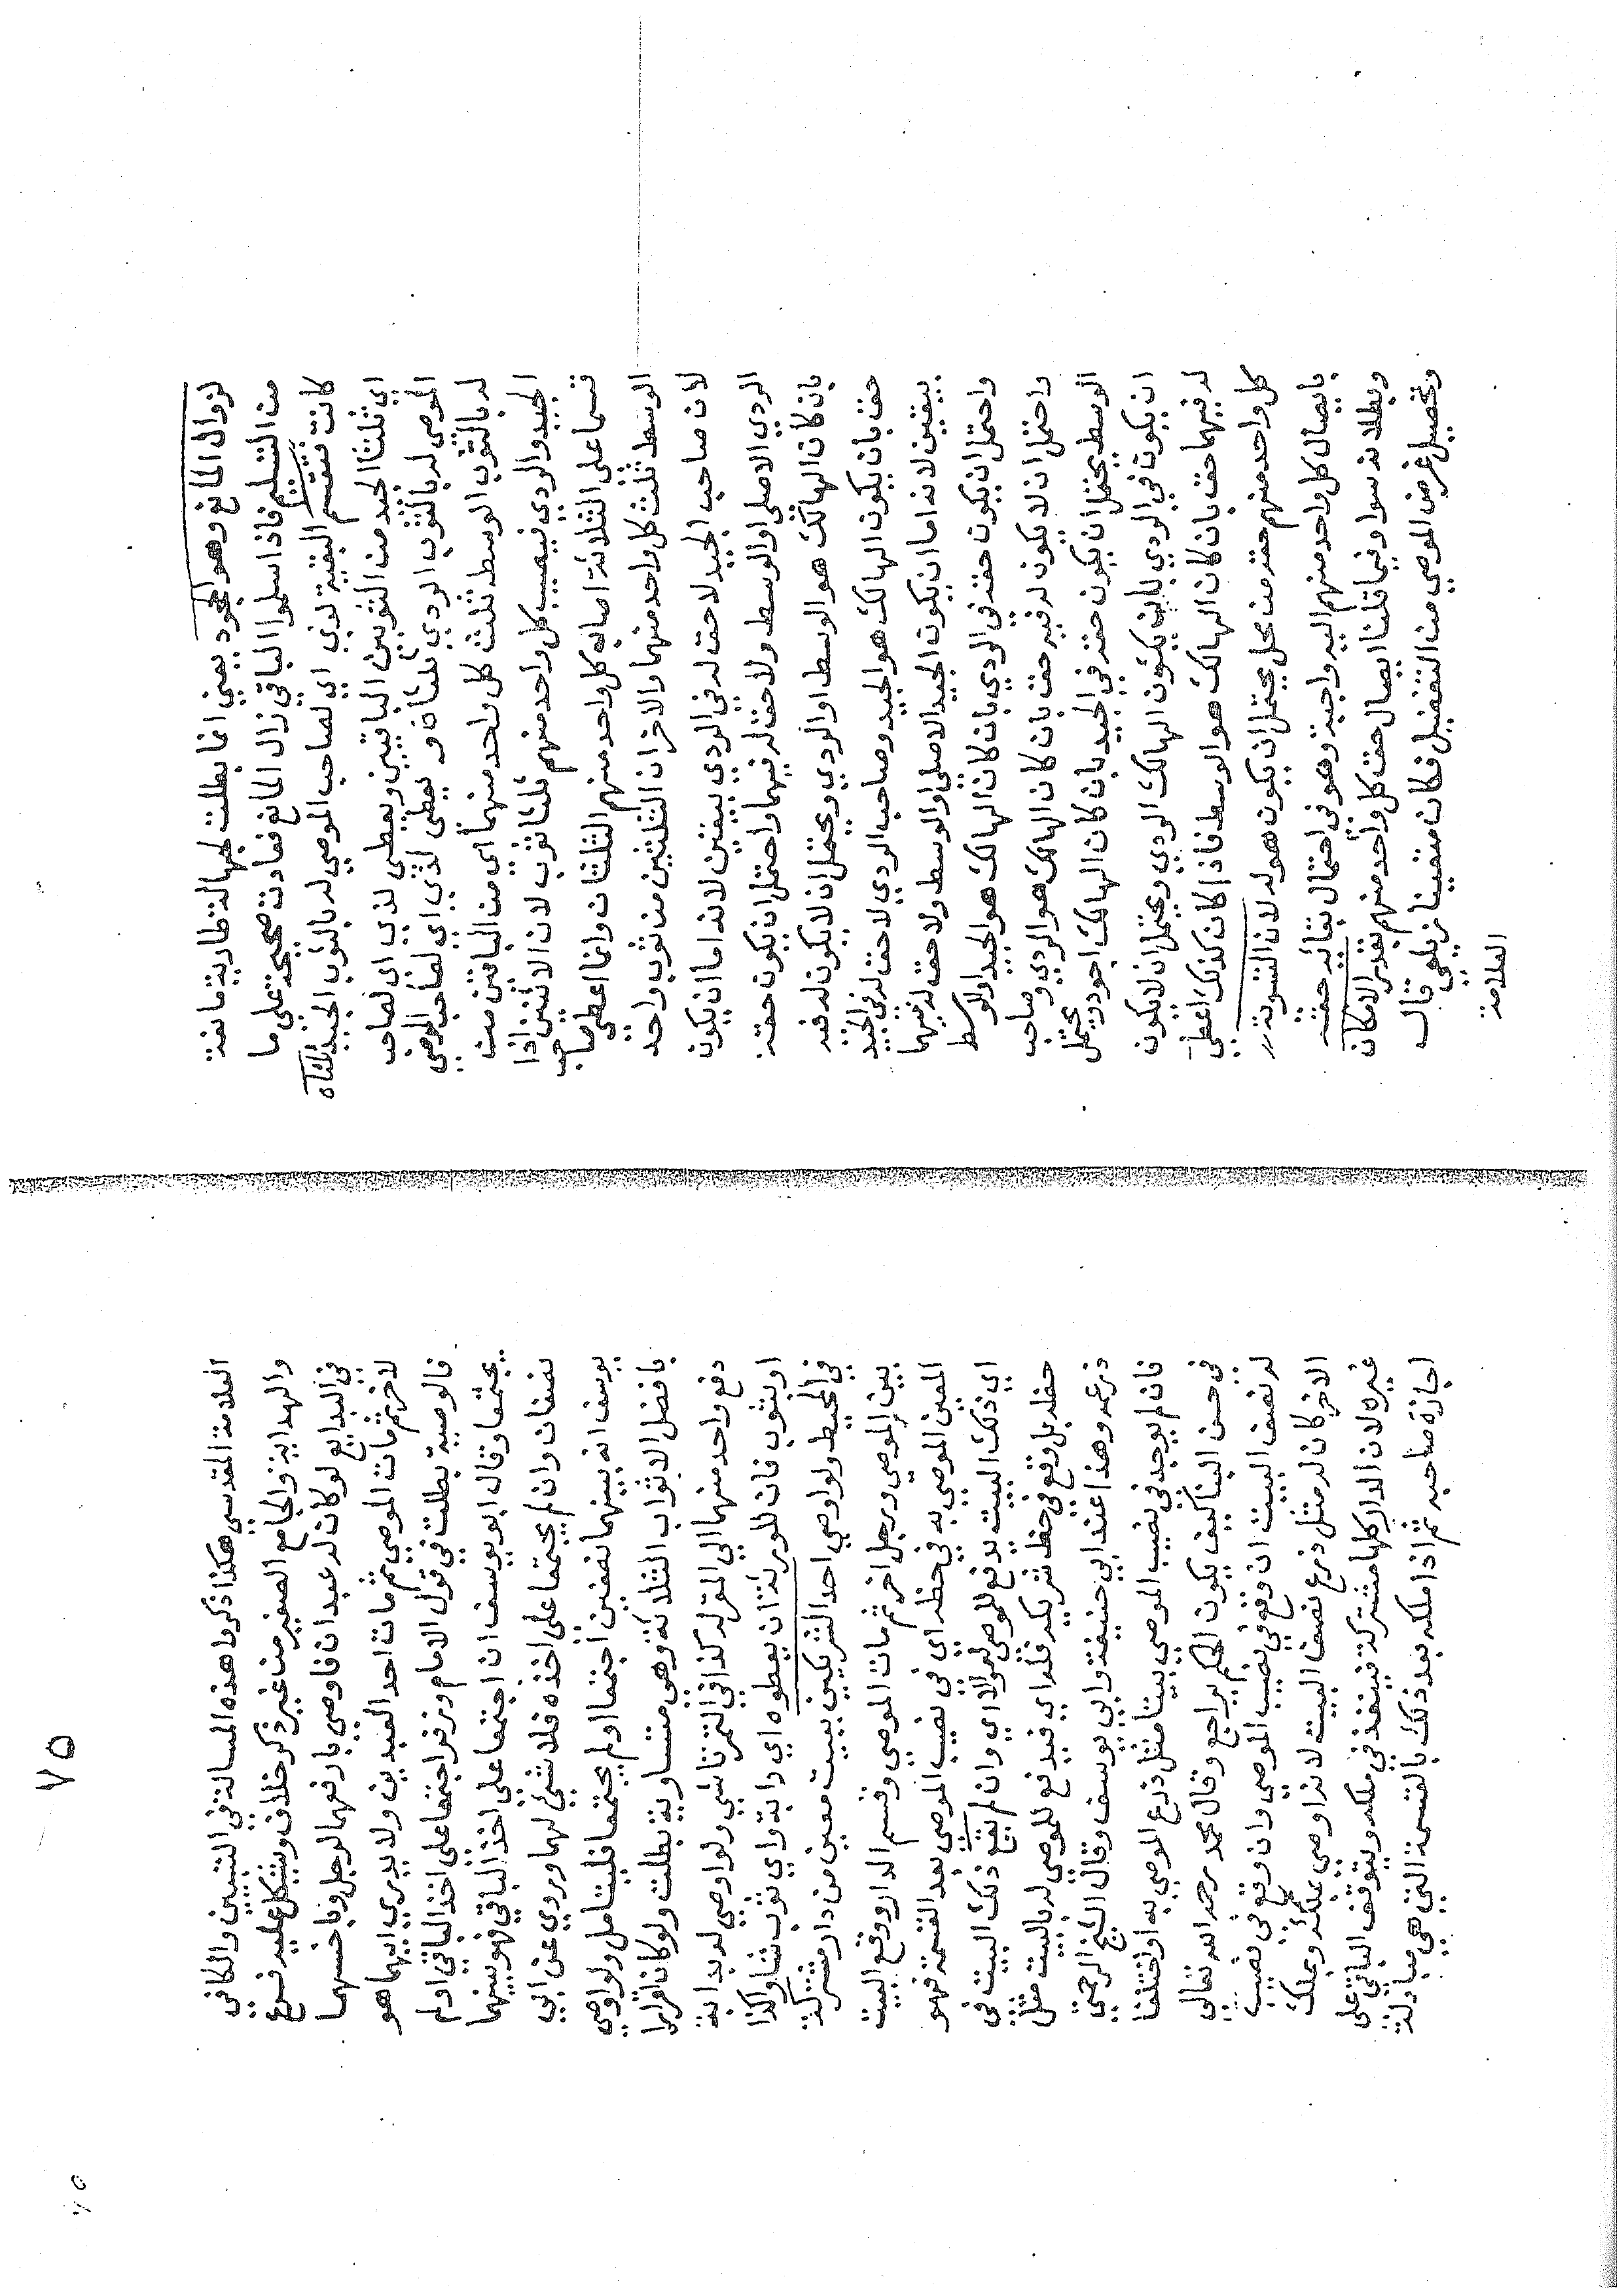 لزوال المانع وهو الجحود يعني انما بطلت لجهالة طارية مانعة
من التسليم فاذا سلموا الباقي زال المانع فعادت صحيحة على ما
كانت فتقسم البقية لذي اي لصاحب الموصي له بالثوب الجيد ثلثاه
اي ثلثا الجيد من الثوبين الباقيين ويعطى لذي اي لصاحب
الموصى له بالثوب الردي ثلثاه ويعطى لذي اي لصاحب الموصي
له بالثوب الوسط ثلث كل واحد منهما اي من الباقين من
الجيد والردي فيصيب كل واحد منهم ثلثا ثوب لان الاثنين اذا
قسما على الثلاثة اصاب كل واحد منهم الثلثان وانما اعطي صاحب
الوسط ثلث كل واحد منهما والاخران الثلثين من ثوب واحد
لان صاحب الجيد لا حق له في الردي بيقين لانه اما ان يكون
الردي الاصلي او الوسط ولا حق له فيهما واحتمل ان يكون حقه
بان كان الهالك هو الوسط او الردي ويحتمل ان لا يكون له فيه
حق بان يكون الهالك هو الجيد وصاحب الردي لا حق له في الجيد
بيقين لانه اما ان يكون الجيد الاصلي او الوسط ولا حق له فيهما
واحتمل ان يكون حقه في الردي بان كان الهالك هو الجيد او الوسط
واحتمل ان لا يكون له فيه حق بان كان الهالك هو الردي وصاحب
الوسط يحتمل ان يكون حقه في الجيد بان كان الهالك اجود ويحتمل
ان يكون في الردي بان يكون الهالك الردي ويحتمل ان لا يكون
له فيهما حق بان كان الهالك هو الوسط فاذا كان كذلك اعطي
كل واحد منهم حقه من محل يحتمل ان يكون هو له لان التسوية
بايصال كل واحد منهم اليه واجبة وهو في احتمال بقائه حقه
وبطلانه سوا وفيما قلنا ايصال حق كل واحد منهم بقدر الامكان
وتحصيل غرض الموصي من التفضيل فكان متعينا زيلعي قال
العلامة
٧٥
العلامة المقدسي هكذا ذكروا هذه المسالة في التبيين والكافي
والهداية والجامع الصغير من غير ذكر خلاف ويشكل عليه فرع
في البدايع لو كان له عبدان فاوصي بارفعهما لرجل وباخسهما
لاخر ثم مات الموصي ثم مات احد العبدين ولا يدري ايهما هو
فالوصية بطلت في قول الامام وزفر اجتمعا على اخذ الباقي او لم
يجتمعا وقال ابو يوسف ان اجتمعا على اخذ الباقي فهو بينهما
نصفان وان لم يجتمعا على اخذه فلا شيئ لهما وروي عن ابي
يوسف انه بينهما نصفين اجتمعا او لم يجتمعا فليتامل ولو اوصي
بافضل الاثواب الثلاثة وهي متساوية بطلت ولو كانا قرابا
دفع واحد منهما الي المقر له كذا في التمرتاشي ولو اوصي له بدابة
او بثوب فان للورثة ان يعطوه اي دابة واي ثوب شاوا كذا
في المحيط ولو اوصي احد الشريكين ببيت معين من دار مشتركة
بين الموصي ورجل اخر ثم مات الموصي وقسم الدار ووقع البيت
المعين الموصي به في حظه اي في نصيب الموصي بعد القسمة فهو
اي ذلك البيت يدفع للموصى له والا اي وان لم يقع ذلك البيت في
حظه بل وقع في حظ شريكه فمثله اي فيدفع للموصي له بالبيت مثل
ذرعه وهذا عند ابي حنيفة وابي يوسف وقال الشيخ الرحمتي
فان لم يوجد في نصيب الموصي بيتا مثل ذرع الموصي به او اختلفا
في حسن البنا كيف يكون الحكم يراجع وقال محمد رحمه الله تعالى
له نصف البيت ان وقع في نصيب الموصي وان وقع في نصيب
الاخر كان له مثل ذرع نصف البيت لانه اوصي بملكه وبملك
غيره لان الدار كلها مشتركة فينفذ في ملكه ويتوقف الباقي على
اجازة صاحبه ثم اذا ملكه بعد ذلك بالقسمة التي هي مبادلة